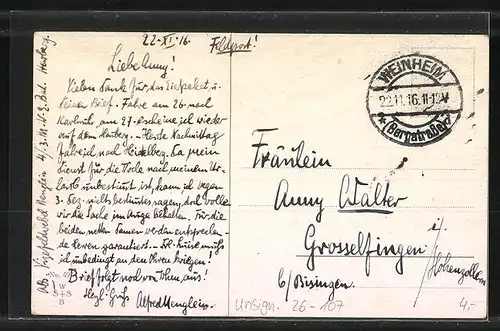 22.XI.16.
Feldpost!
Liebe Anny!
Vielen Dank für das Eilpaket, u.
Deinen Brief. Fahre am 26. nach
Karlsruhe, am 27. erscheine ich wieder
auf dem Heuberg. – Heute Nachmittag
fahre ich nach Heidelberg. Da mein
Dienst für die Woche nach meinem Ur-
laub unbestimmt ist, kann ich wegen
3. Dez. nichts bestimmtes sagen, doch
wir die Sache im Auge behalten. Für die
beiden netten Damen werden entsprechen-
de Herren garantiert. –
unbedingt an den Ohren kriegen!
Brief folgt noch von Ulm aus!
Herzl. Gruß
Alfred Henglein.
Abs. Vizefeldwebel Henglein
Heuberg.
WEINHEIM
22.11.16. 11-12V
* (Bergstraße) *
Fräulein
Anny Walter
Grosselfingen
b/Bisingen.
i/
Hohenzollern
No.
W
S S
B
unsign. 26-107
4.-